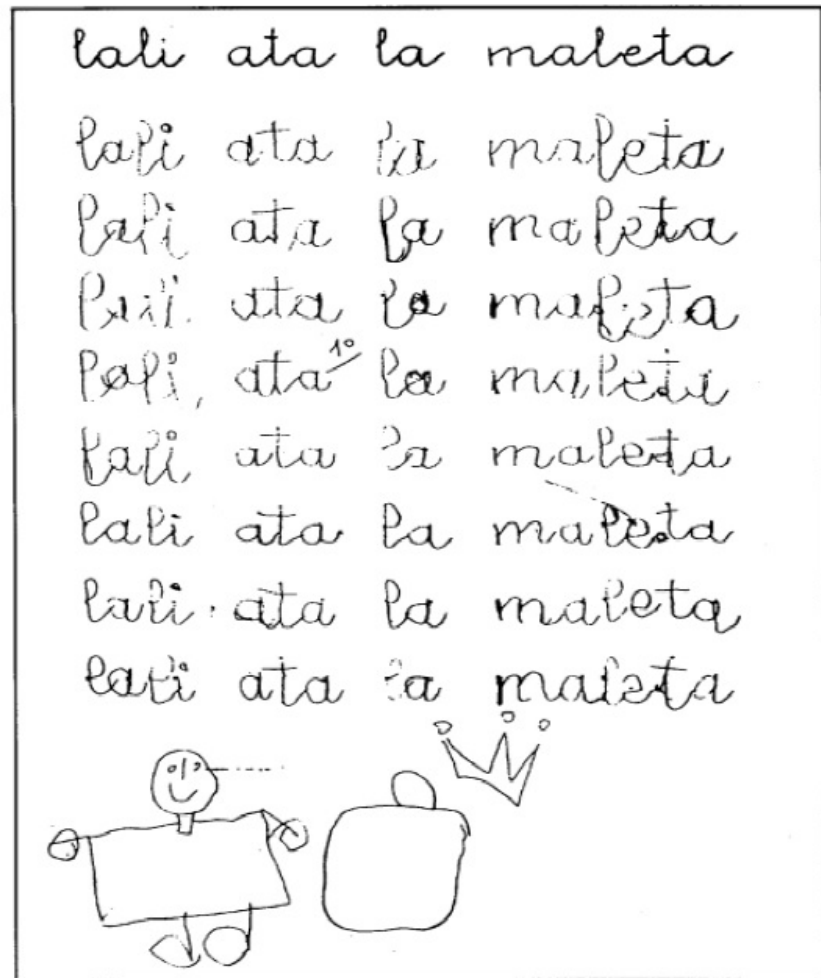 lali ata la maleta
lali ata la maleta
lali ata la maleta
lali ata la maleta
lali ata 1º la maleta
lali ata la maleta
lali ata la maleta
lali ata la maleta
lali ata la maleta